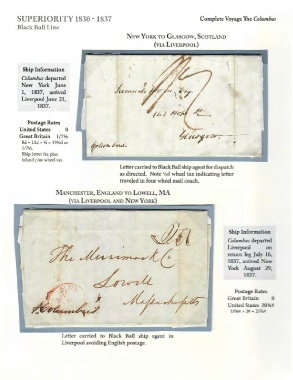 SUPERIORITY 1830 - 1837
Complete Voyage The Columbus
Black Ball Line
NEW YORK TO GLASGOW, SCOTLAND
(VIA LIVERPOOL)
Ship Information
Columbus departed
New York June
1, 1837, arrived
Liverpool June 21,
1837.
Postage Rates
United States 0
Great Britain 1/7½
Ship letter fee plus
inland plus wheel tax
Glasgow
Letter carried to Black Ball ship agent for dispatch
as directed. Note ½d wheel tax indicating letter
traveled in four wheel mail coach.
MANCHESTER, ENGLAND TO LOWELL, MA
(VIA LIVERPOOL AND NEW YORK)
The Merrimack Co
Lowell
Massachusetts
Columbus
Ship Information
Columbus departed
Liverpool on
return leg July 16,
1837, arrived New
York August 29,
1837.
Postage Rates
Great Britain 0
United States 20¾¢
Letter carried to Black Ball ship agent in
Liverpool avoiding English postage.